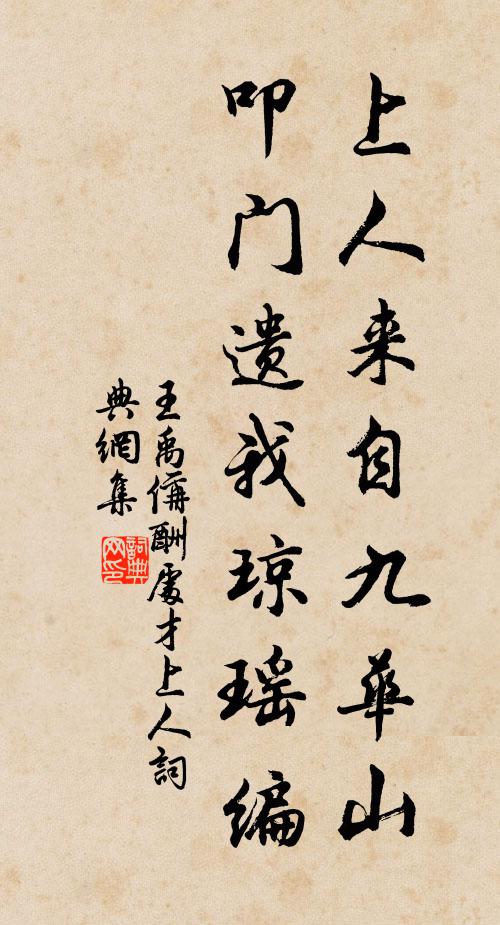 上人来自九華山
叩门遗我琼瑶编
王禹偁酬處才上人詞
典網集
詞典
网印